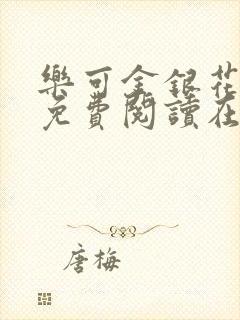 樂可金銀花
免費閱讀在
唐梅